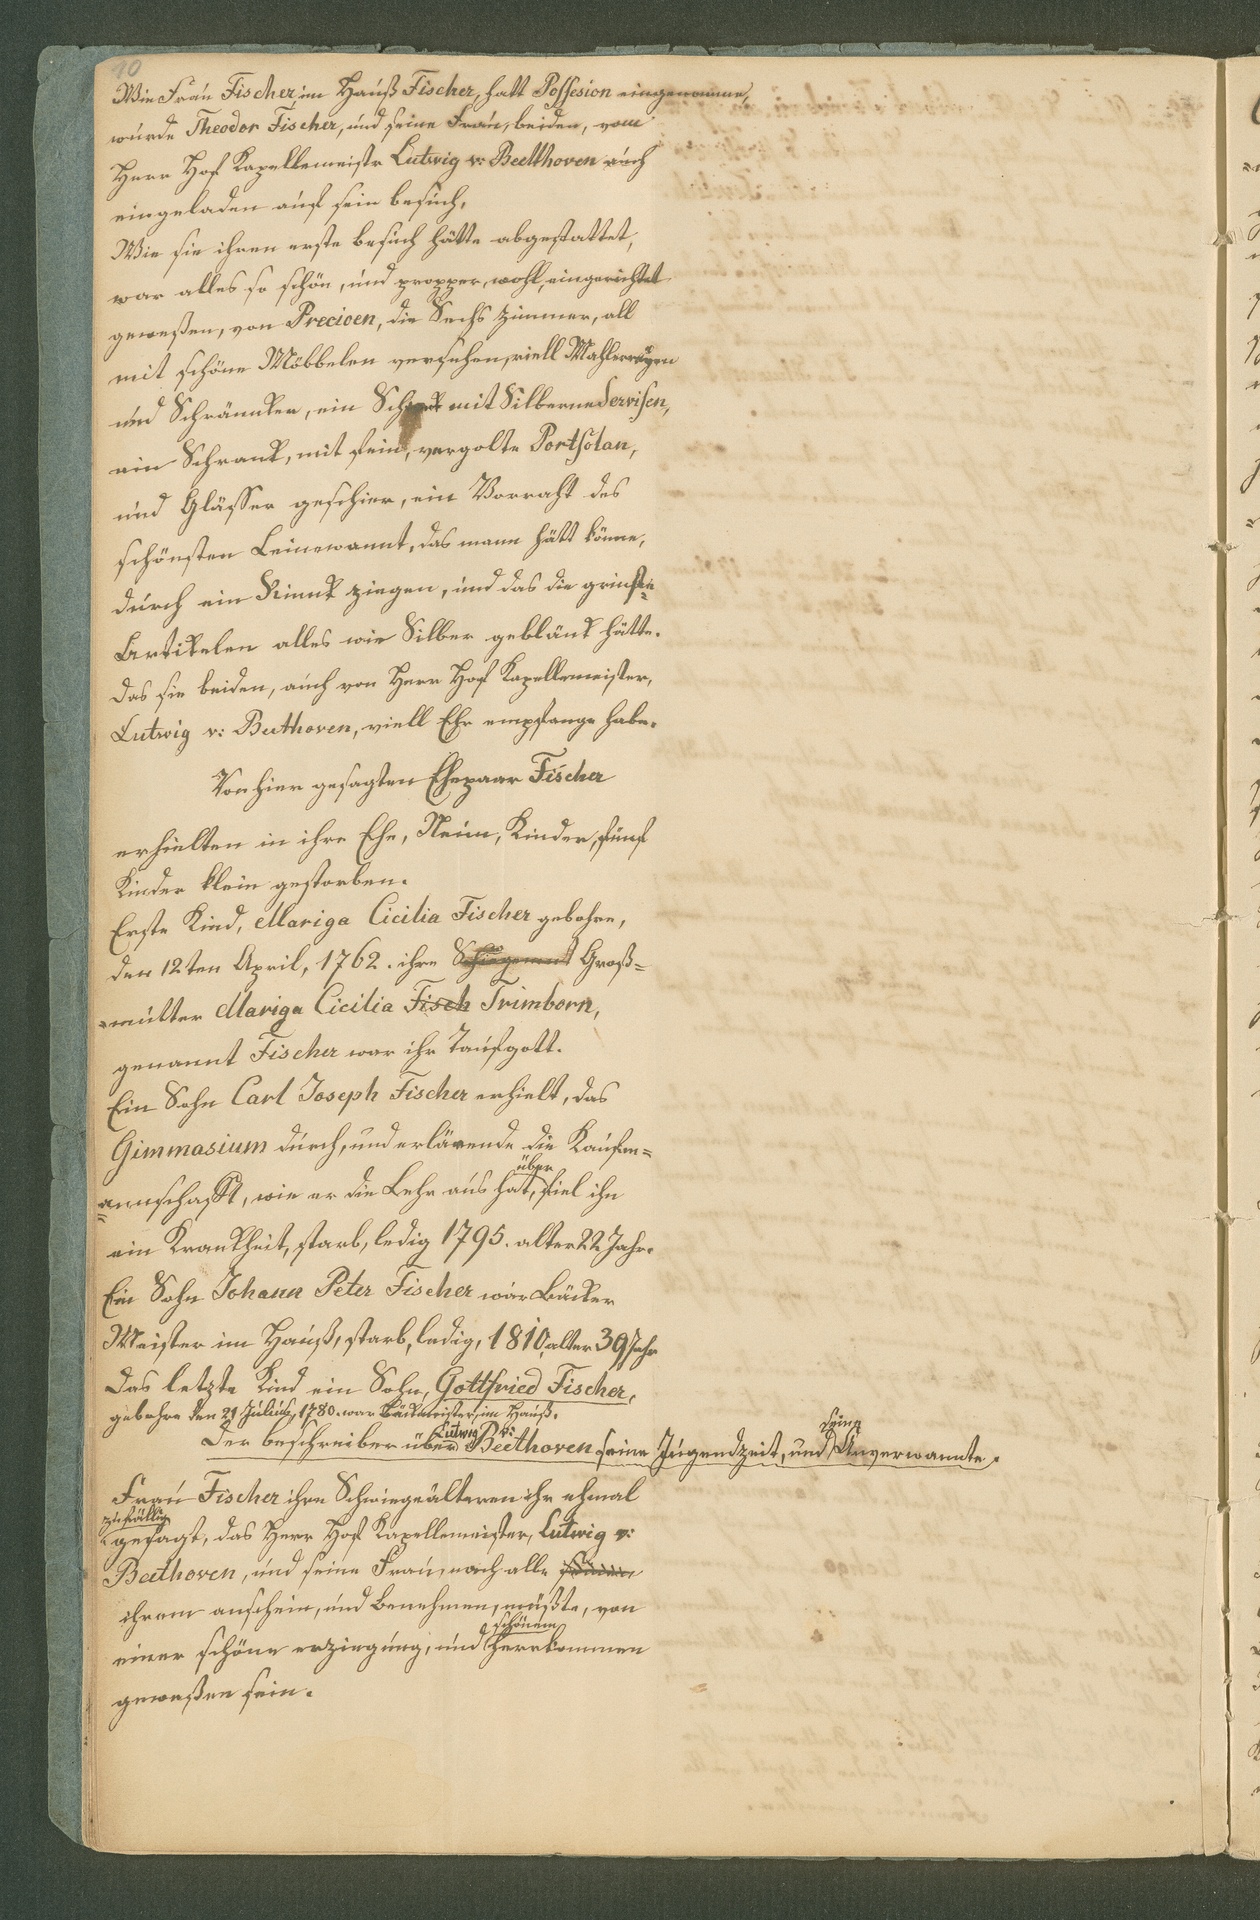 10
Wie Frau Fischer, im Hauß Fischer, hatt Possesion eingenomme,
wurde Theodor Fischer, und seine Frau, beiden, vom
Herr Hof Kapellemeistr Lutwig v: Beethoven auch
eingeladen auf sein besuch,
Wie sie ihren erste besuch hätte abgestattet,
war alles so schön, und propper, wohl, eingerichtet
geweßen, von Precioen, die Sechs zimmer, all
mit schöne Möbbelen versehen, viell Mahlereyen
und Schräncken, ein Schrank mit Silberne Servisen,
ein Schrank, mit fein, vergolte Portsolan,
und Glässer geschier, ein Vorraht des
schönsten Leinewannt, das mann hätt könne,
durch ein Rinnk ziegen, und das die grinste
Artikelen alles wie Silber geblänkt hätte.
Das sie beiden, auch von Herr Hof Kapellemeister,
Lutwig v: Beethoven, viell Ehr empfange habe.
Von hier gesagten Ehepaar Fischer
erhielten in ihre Ehe, Neun, Kinder, fünf
Kinder klein gestorben.
Erste Kind, Mariga Cicilia Fischer gebohre,
den 12ten April, 1762. ihre Groß=
=mutter Mariga Cicilia Fisch Trimborn,
genannt Fischer war ihr Taufgott.
Ein Sohn Carl Joseph Fischer erhielt, das
Gimmasium durch, und erlärende die Kaufm=
=annschafft, wie er die Lehr aus hat, über fiel ihn
ein Krankheit, starb, ledig 1795. alter 22 Jahr.
Ein Sohn Johann Peter Fischer war Bäcker
Meister im Hauß, starb, ledig, 1810, alter 39 Jahr
Das letzte Kind ein Sohn, Gottfried Fischer,
gebohre den 21 Julius, 1780. war Bäckmeister, im Hauß.
Der beschreiber über Lutwig v: Beethoven seine Jugendzeit, und seine Anverwannte.
Frau Fischer ihre Schwiegeälteren ihr ehmal
zufällig gesagt, das Herr Hof Kapellemeister, Lutwig v:
Beethoven, und seine Frau, nach alle
ihrem anschein, und Benehmen, müßte, von
einer schöne erziegung, und schönem herrkommen
geweßen sein.